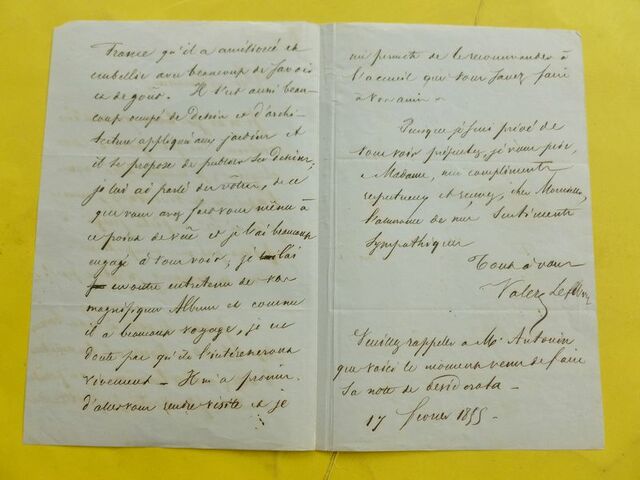 France qu'il a amélioré et
embellie avec beaucoup de savoir
et de goût. Il s'est aussi beau-
coup occupé de dessin et d'archi-
tecture appliquée aux jardins et
il se propose de publier ses dessins,
je lui ai parlé du vôtre, de ce
que vous avez fait vous même à
ce point de vue et je l'ai beaucoup
engagé à vous voir; je l'ai
en outre entretenu de vos
magnifiques Album et comme
il a beaucoup voyagé, je ne
doute pas qu'ils l'intéresseront
vivement _ Il m'a promis
d'aller vous rendre visite et je
me permets de le recommander à
l'accueil que vous savez faire
à vos amis _
Puisque je suis privé de
vous voir présentez, je vous prie,
à Madame, mes compliments
respectueux et recevez, cher Monsieur,
l'assurance de mes sentiments
sympathiques
Tout à vous
Valery
Veuillez rappeler à Mr Antonin
que voici le moment venu de faire
sa note de desiderata _
17 février 1855